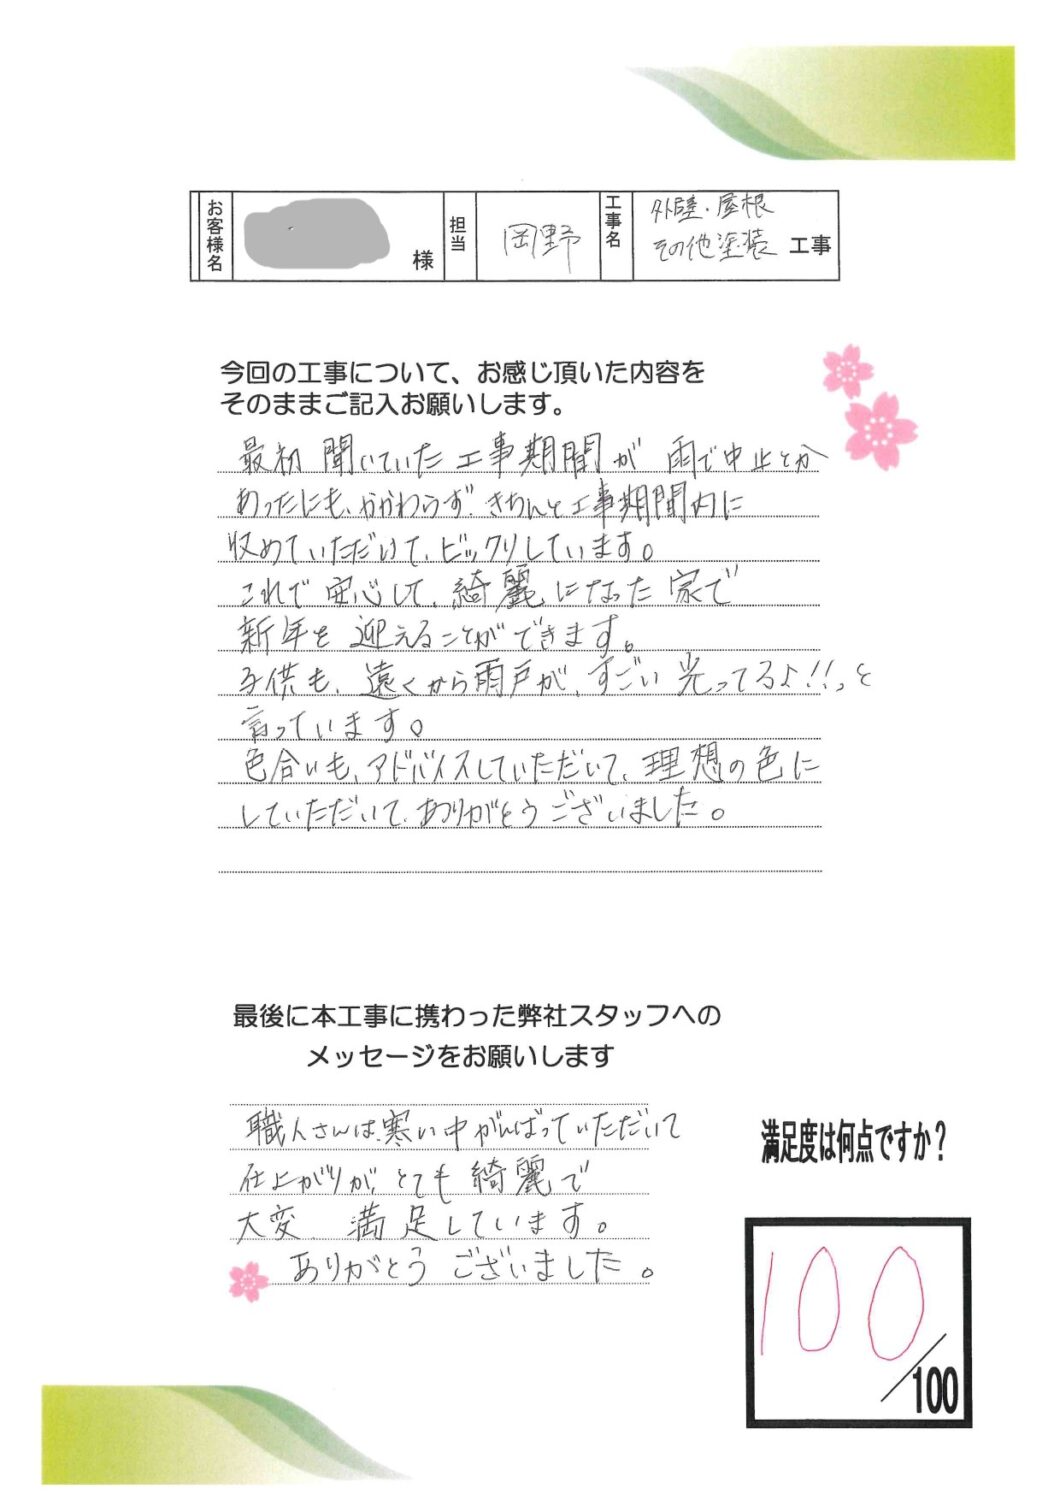 お客様名 様 担当 岡野 工事名 外壁・屋根
その他塗装 工事
今回の工事について、お感じ頂いた内容を
そのままご記入お願いします。
最初 聞いていた工事期間が 雨で中止とか
あったにも、かかわらず きちんと工事期間内に
収めていただいて、ビックリしています。
これで安心して、綺麗になった家で
新年を迎えることができます。
子供も、遠くから雨戸が、すごい光ってるよ!!っと
言っています。
色合いも、アドバイスしていただいて、理想の色に
していただいて、ありがとうございました。
最後に本工事に携わった弊社スタッフへの
メッセージをお願いします
職人さんは、寒い中がんばっていただいて
仕上がりが、とても綺麗で
大変、満足しています。
ありがとうございました。
満足度は何点ですか？
100
/100